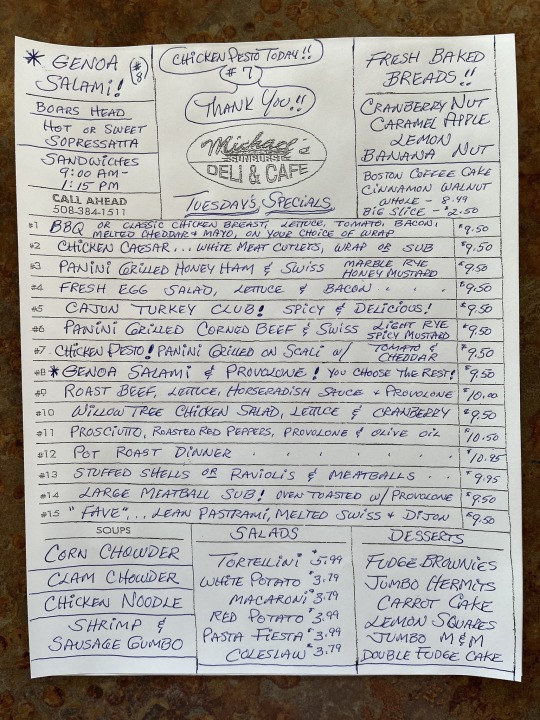 * GENOA #8
SALAMI!
BOARS HEAD
HOT OR SWEET
SOPRESSATTA
SANDWICHES
9:00 AM-
1:15 PM
CALL AHEAD
508-384-1511
CHICKEN PESTO TODAY!!
#7
THANK YOU!!
Michael's
DELI & CAFE
TUESDAY'S SPECIALS
FRESH BAKED
BREADS!!
CRANBERRY NUT
CARAMEL APPLE
LEMON
BANANA NUT
BOSTON COFFEE CAKE
CINNAMON WALNUT
WHOLE - 8.49
BIG SLICE - $2.50
#1 BBQ OR CLASSIC CHICKEN BREAST, LETTUCE, TOMATO, BACON,
MELTED CHEDDAR & MAYO, ON YOUR CHOICE OF WRAP $9.50
#2 CHICKEN CAESAR... WHITE MEAT CUTLETS, WRAP OR SUB $9.50
#3 PANINI GRILLED HONEY HAM & SWISS MARBLE RYE
HONEY MUSTARD $9.50
#4 FRESH EGG SALAD, LETTUCE & BACON . . . $9.50
#5 CAJUN TURKEY CLUB! SPICY & DELICIOUS! $9.50
#6 PANINI GRILLED CORNED BEEF & SWISS LIGHT RYE
SPICY MUSTARD $9.50
#7 CHICKEN PESTO! PANINI GRILLED ON SCALI W/ TOMATO &
CHEDDAR $9.50
#8 * GENOA SALAMI & PROVOLONE! YOU CHOOSE THE REST! $9.50
#9 ROAST BEEF, LETTUCE, HORSERADISH SAUCE + PROVOLONE $10.00
#10 WILLOW TREE CHICKEN SALAD, LETTUCE & CRANBERRY $9.50
#11 PROSCIUTTO, ROASTED RED PEPPERS, PROVOLONE & OLIVE OIL $10.50
#12 POT ROAST DINNER . . . . . . $10.95
#13 STUFFED SHELLS OR RAVIOLI'S & MEATBALLS . . $9.95
#14 LARGE MEATBALL SUB! OVEN TOASTED W/ PROVOLONE $9.50
#15 "FAVE"... LEAN PASTRAMI, MELTED SWISS + DIJON $9.50
SOUPS
CORN CHOWDER
CLAM CHOWDER
CHICKEN NOODLE
SHRIMP &
SAUSAGE GUMBO
SALADS
TORTELLINI $5.99
WHITE POTATO $3.79
MACARONI $3.79
RED POTATO $3.99
PASTA FIESTA $3.99
COLESLAW $3.79
DESSERTS
FUDGE BROWNIES
JUMBO HERMITS
CARROT CAKE
LEMON SQUARES
JUMBO M & M
DOUBLE FUDGE CAKE